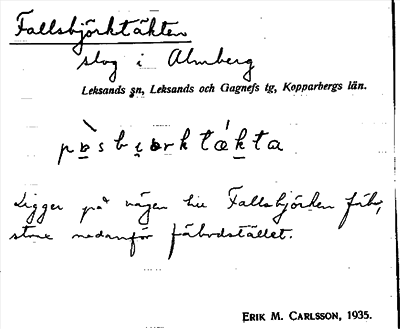 Fallsbjörktäkten
slog i Almberg
Leksands sn, Leksands och Gagnefs tg, Kopparbergs län.
Ligger på vägen till Fallsbjörken fäb,
strax nedanför fäbodstället.
ERIK M. CARLSSON, 1935.